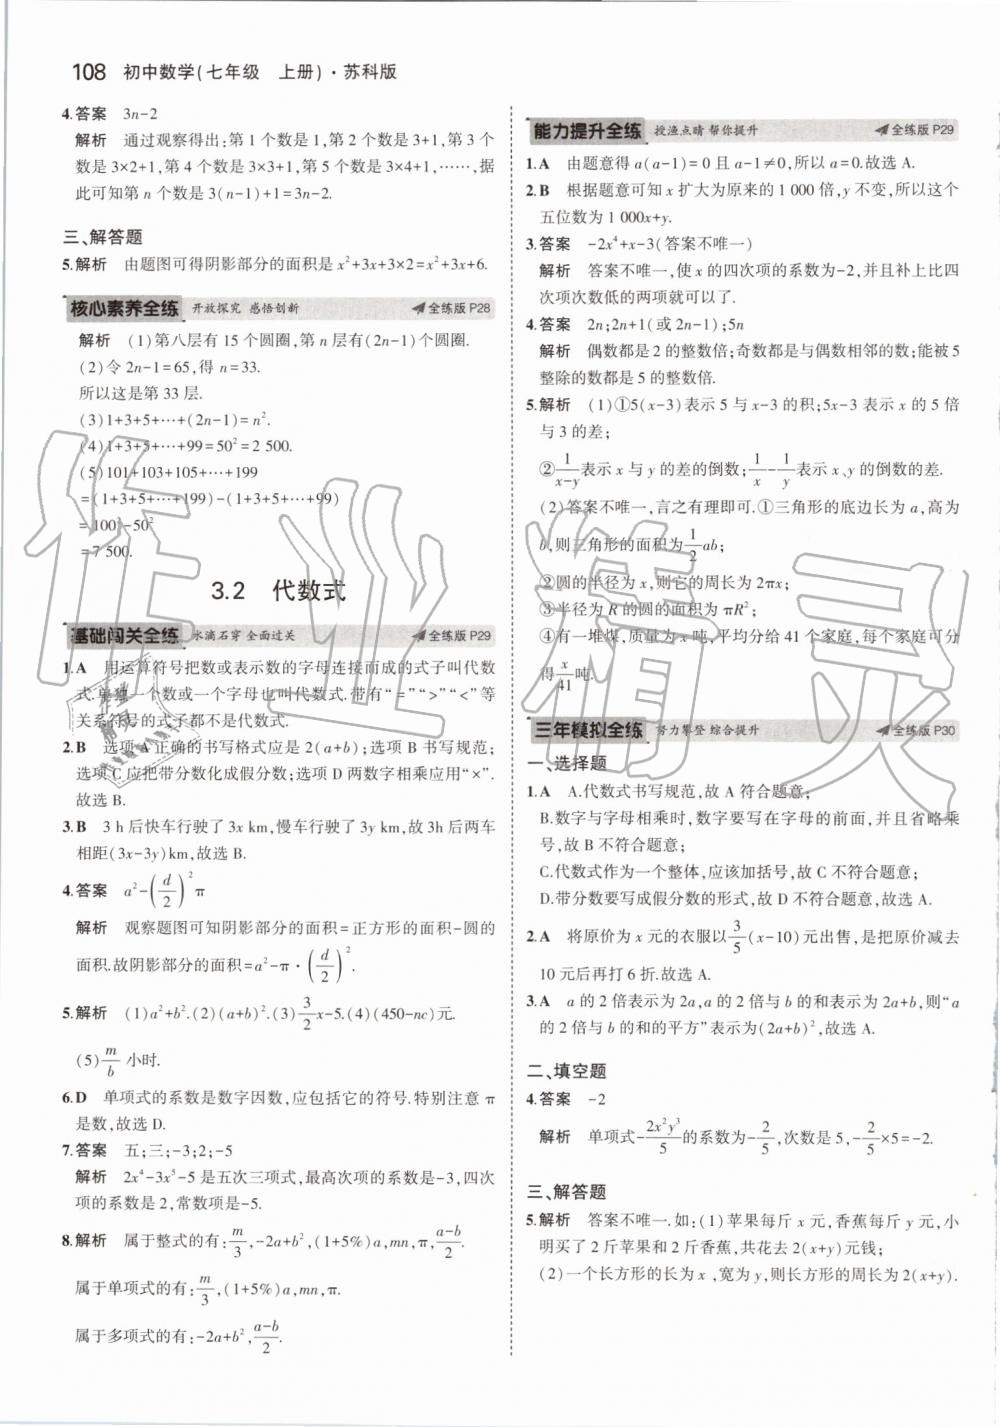 108 初中数学(七年级 上册)·苏科版
4.答案 3n-2
解析 通过观察得出:第1个数是1,第2个数是3+1,第3个
数是3×2+1,第4个数是3×3+1,第5个数是3×4+1,……,据
此可知第n个数是3(n-1)+1=3n-2.
三、解答题
5.解析 由题图可得阴影部分的面积是x²+3x+3×2=x²+3x+6.
核心素养全练 开放探究 感悟创新 全练版P28
解析 (1)第八层有15个圆圈,第n层有(2n-1)个圆圈.
(2)令2n-1=65,得n=33.
所以这是第33层.
(3)1+3+5+…+(2n-1)=n².
(4)1+3+5+…+99=50²=2 500.
(5)101+103+105+…+199
=(1+3+5+…+199)-(1+3+5+…+99)
=100²-50²
=7 500.
3.2 代数式
基础闯关全练 水滴石穿 全面过关 全练版P29
1.A 用运算符号把数或表示数的字母连接而成的式子叫代数
式.单独一个数或一个字母也叫代数式.带有“=”“>”“<”等
关系符号的式子都不是代数式.
2.B 选项A正确的书写格式应是2(a+b);选项B书写规范;
选项C应把带分数化成假分数;选项D两数字相乘应用“×”.
故选B.
3.B 3 h后快车行驶了3x km,慢车行驶了3y km,故3h后两车
相距(3x-3y)km,故选B.
4.答案 a²-(d/2)²π
解析 观察题图可知阴影部分的面积=正方形的面积-圆的
面积.故阴影部分的面积=a²-π·(d/2)².
5.解析 (1)a²+b².(2)(a+b)².(3)3/2x-5.(4)(450-nc)元.
(5)m/b小时.
6.D 单项式的系数是数字因数,应包括它的符号.特别注意π
是数,故选D.
7.答案 五;三;-3;2;-5
解析 2x⁴-3x⁵-5是五次三项式,最高次项的系数是-3,四次
项的系数是2,常数项是-5.
8.解析 属于整式的有:m/3,-2a+b²,(1+5%)a,mn,π,(a-b)/2.
属于单项式的有:m/3,(1+5%)a,mn,π.
属于多项式的有:-2a+b²,(a-b)/2.
能力提升全练 授渔点睛 帮你提升 全练版P29
1.A 由题意得a(a-1)=0且a-1≠0,所以a=0.故选A.
2.B 根据题意可知x扩大为原来的1 000倍,y不变,所以这个
五位数为1 000x+y.
3.答案 -2x⁴+x-3(答案不唯一)
解析 答案不唯一,使x的四次项的系数为-2,并且补上比四
次项次数低的两项就可以了.
4.答案 2n;2n+1(或2n-1);5n
解析 偶数都是2的整数倍;奇数都是与偶数相邻的数;能被5
整除的数都是5的整数倍.
5.解析 (1)①5(x-3)表示5与x-3的积;5x-3表示x的5倍
与3的差;
②1/(x-y)表示x与y的差的倒数;1/x-1/y表示x、y的倒数的差.
(2)答案不唯一,言之有理即可.①三角形的底边长为a,高为
b,则三角形的面积为1/2ab;
②圆的半径为x,则它的周长为2πx;
③半径为R的圆的面积为πR²;
④有一堆煤,质量为x吨,平均分给41个家庭,每个家庭分
得x/41吨.
三年模拟全练 努力攀登 综合提升 全练版P30
一、选择题
1.A A.代数式书写规范,故A符合题意;
B.数字与字母相乘时,数字要写在字母的前面,并且省略乘
号,故B不符合题意;
C.代数式作为一个整体,应该加括号,故C不符合题意;
D.带分数要写成假分数的形式,故D不符合题意.故选A.
2.A 将原价为x元的衣服以3/5(x-10)元出售,是把原价减去
10元后再打6折.故选A.
3.A a的2倍表示为2a,a的2倍与b的和表示为2a+b,则“a
的2倍与b的和的平方”表示为(2a+b)²,故选A.
二、填空题
4.答案 -2
解析 单项式-2x²y³/5的系数为-2/5,次数是5,-2/5×5=-2.
三、解答题
5.解析 答案不唯一.如:(1)苹果每斤x元,香蕉每斤y元,小
明买了2斤苹果和2斤香蕉,共花去2(x+y)元钱;
(2)一个长方形的长为x,宽为y,则长方形的周长为2(x+y).
作业精灵